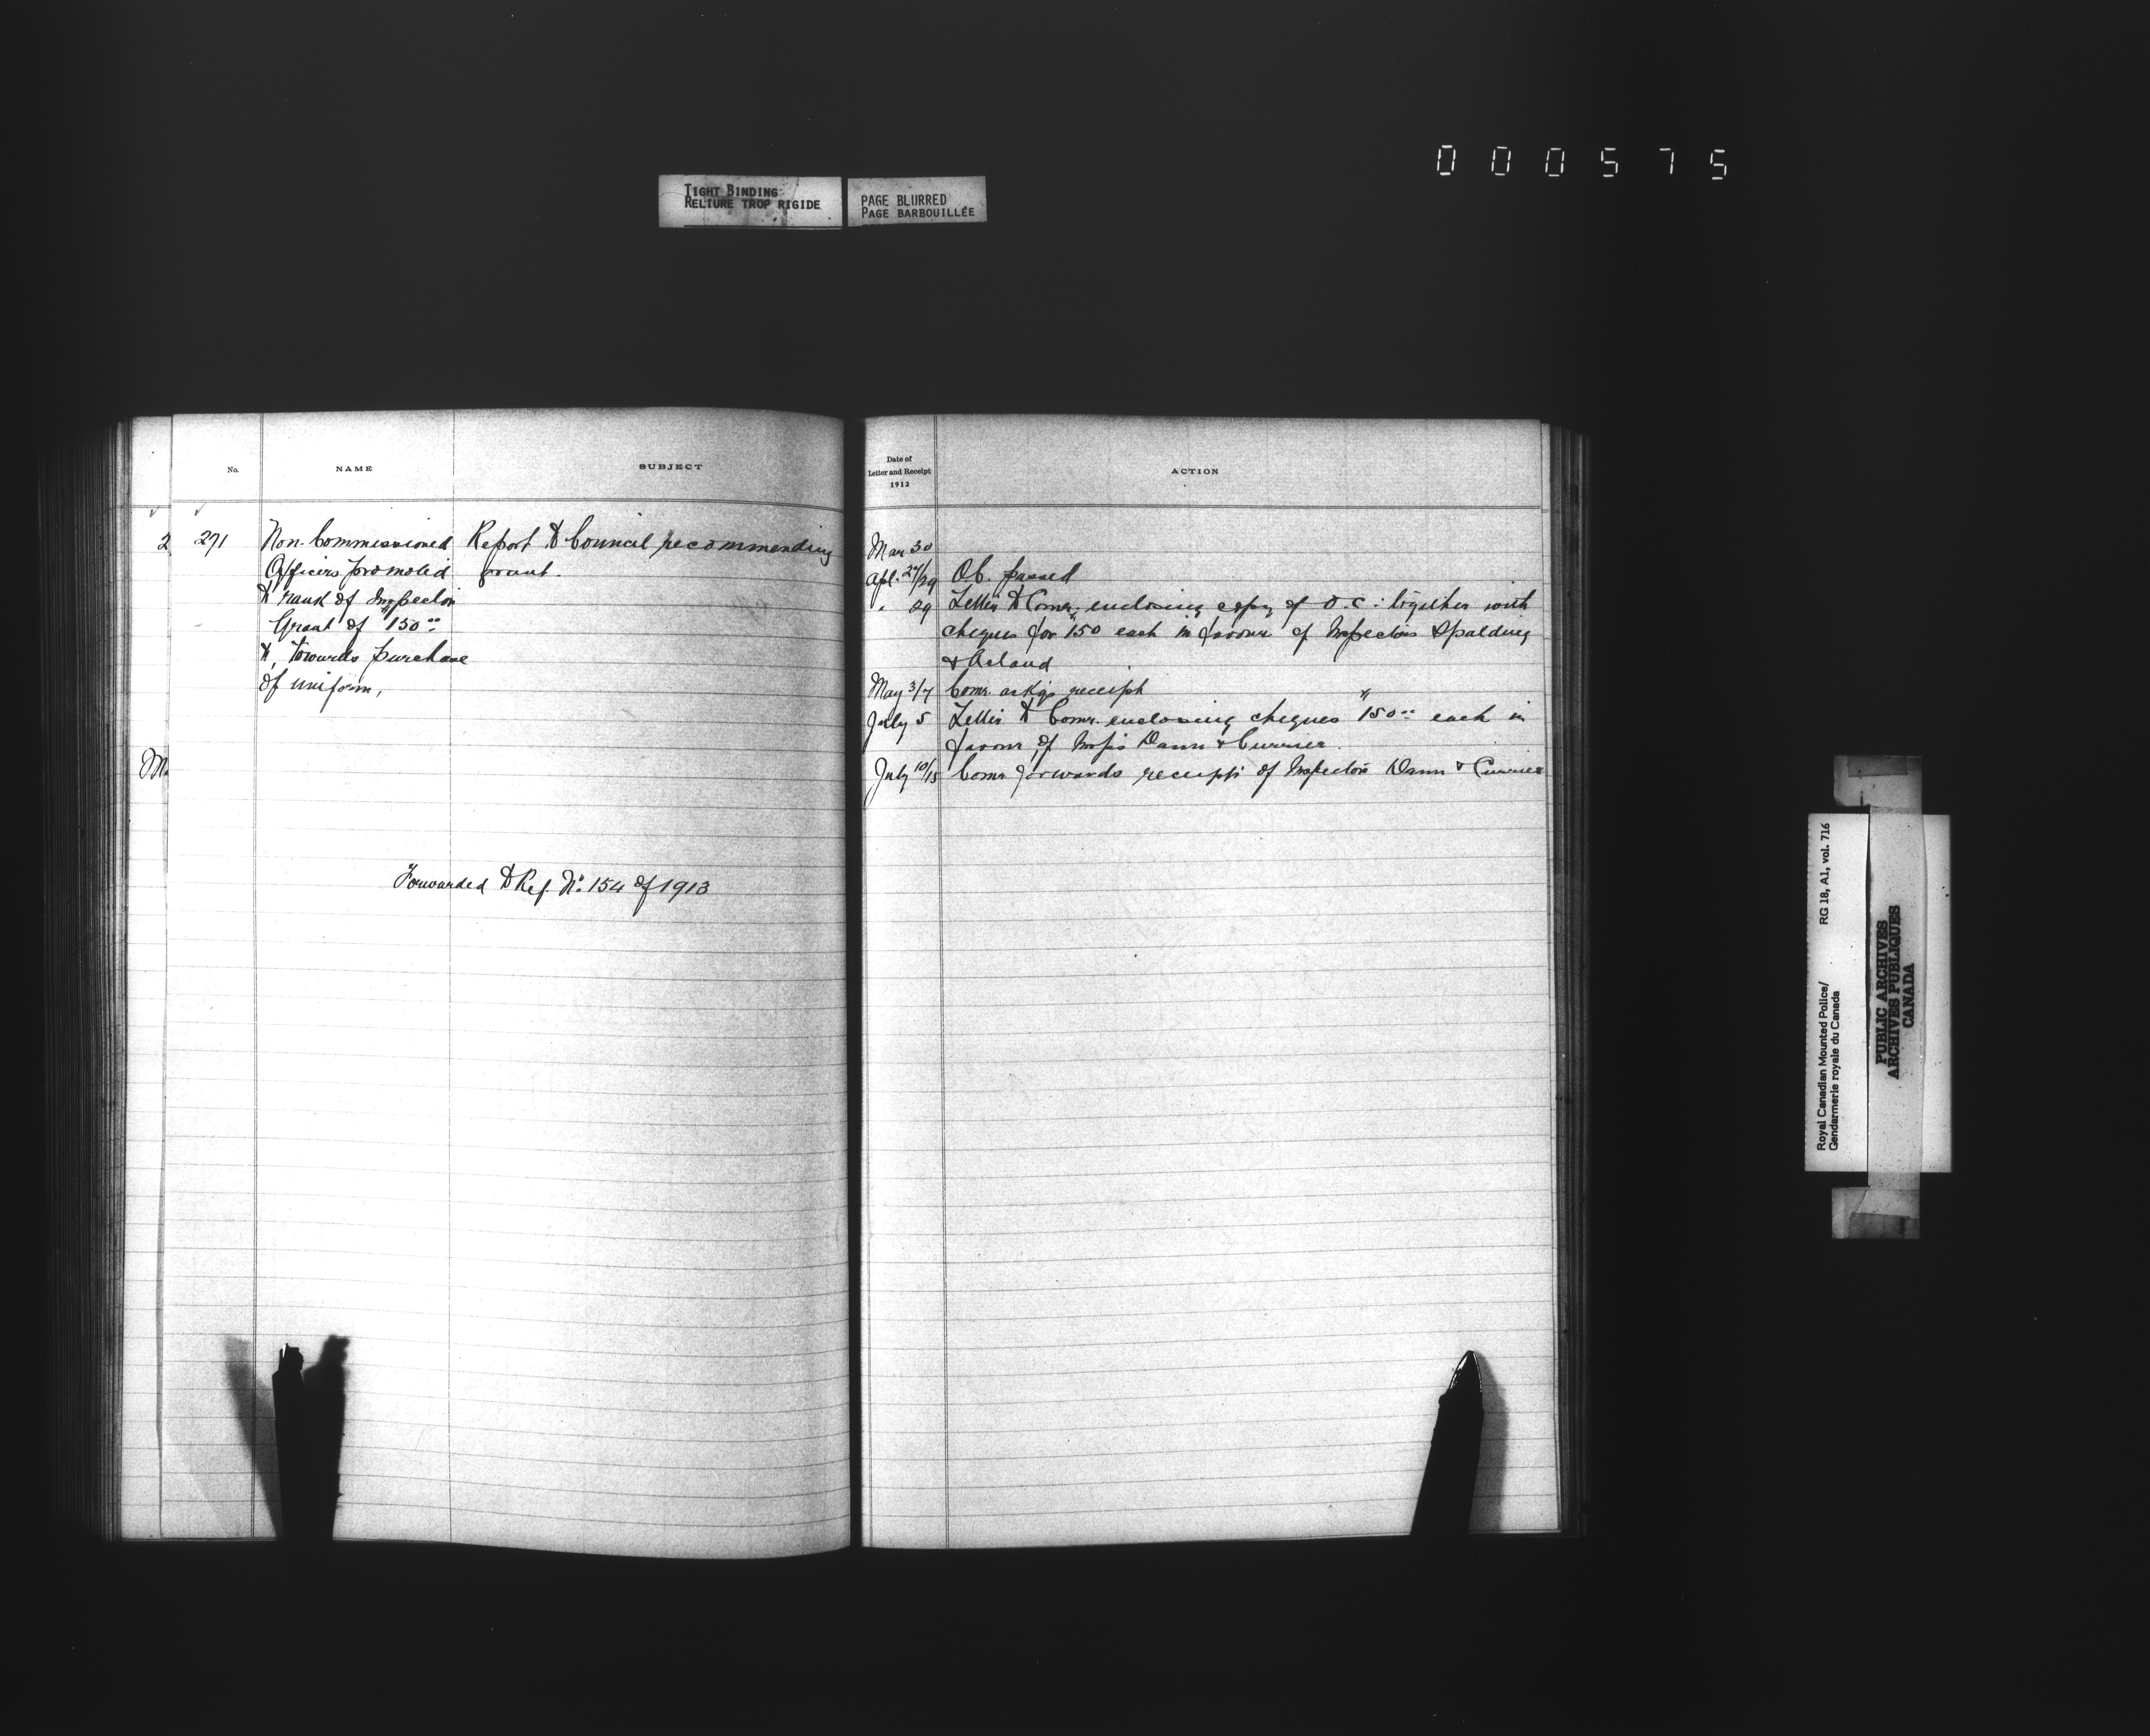 000575
TIGHT BINDING
RELIURE TROP RIGIDE
PAGE BLURRED
PAGE BARBOUILLÉE
No.
NAME
SUBJECT
2
271
Non-Commissioned
Officers promoted
to rank of Inspector
Grant of $150.00
to, towards purchase
of uniform,
Report to Council recommending
grant.
Forwarded to Ref. No. 154 of 1913
Date of
Letter and Receipt
1912
ACTION
Mar 30
Apl. 27/29 O.C. passed
" 29 Letter to Comr. enclosing copy of O.C. : together with
cheques for $150 each in favour of Inspectors Spalding
& Acland
May 3/7 Comr. ackgs receipt
July 5 Letter to Comr. enclosing cheques $150.00 each in
favour of Insprs Dann & Currier.
July 10/15 Comr. forwards receipts of Inspectors Dann & Currier
Royal Canadian Mounted Police/
Gendarmerie royale du Canada
RG 18, A1, vol. 716
PUBLIC ARCHIVES
ARCHIVES PUBLIQUES
CANADA